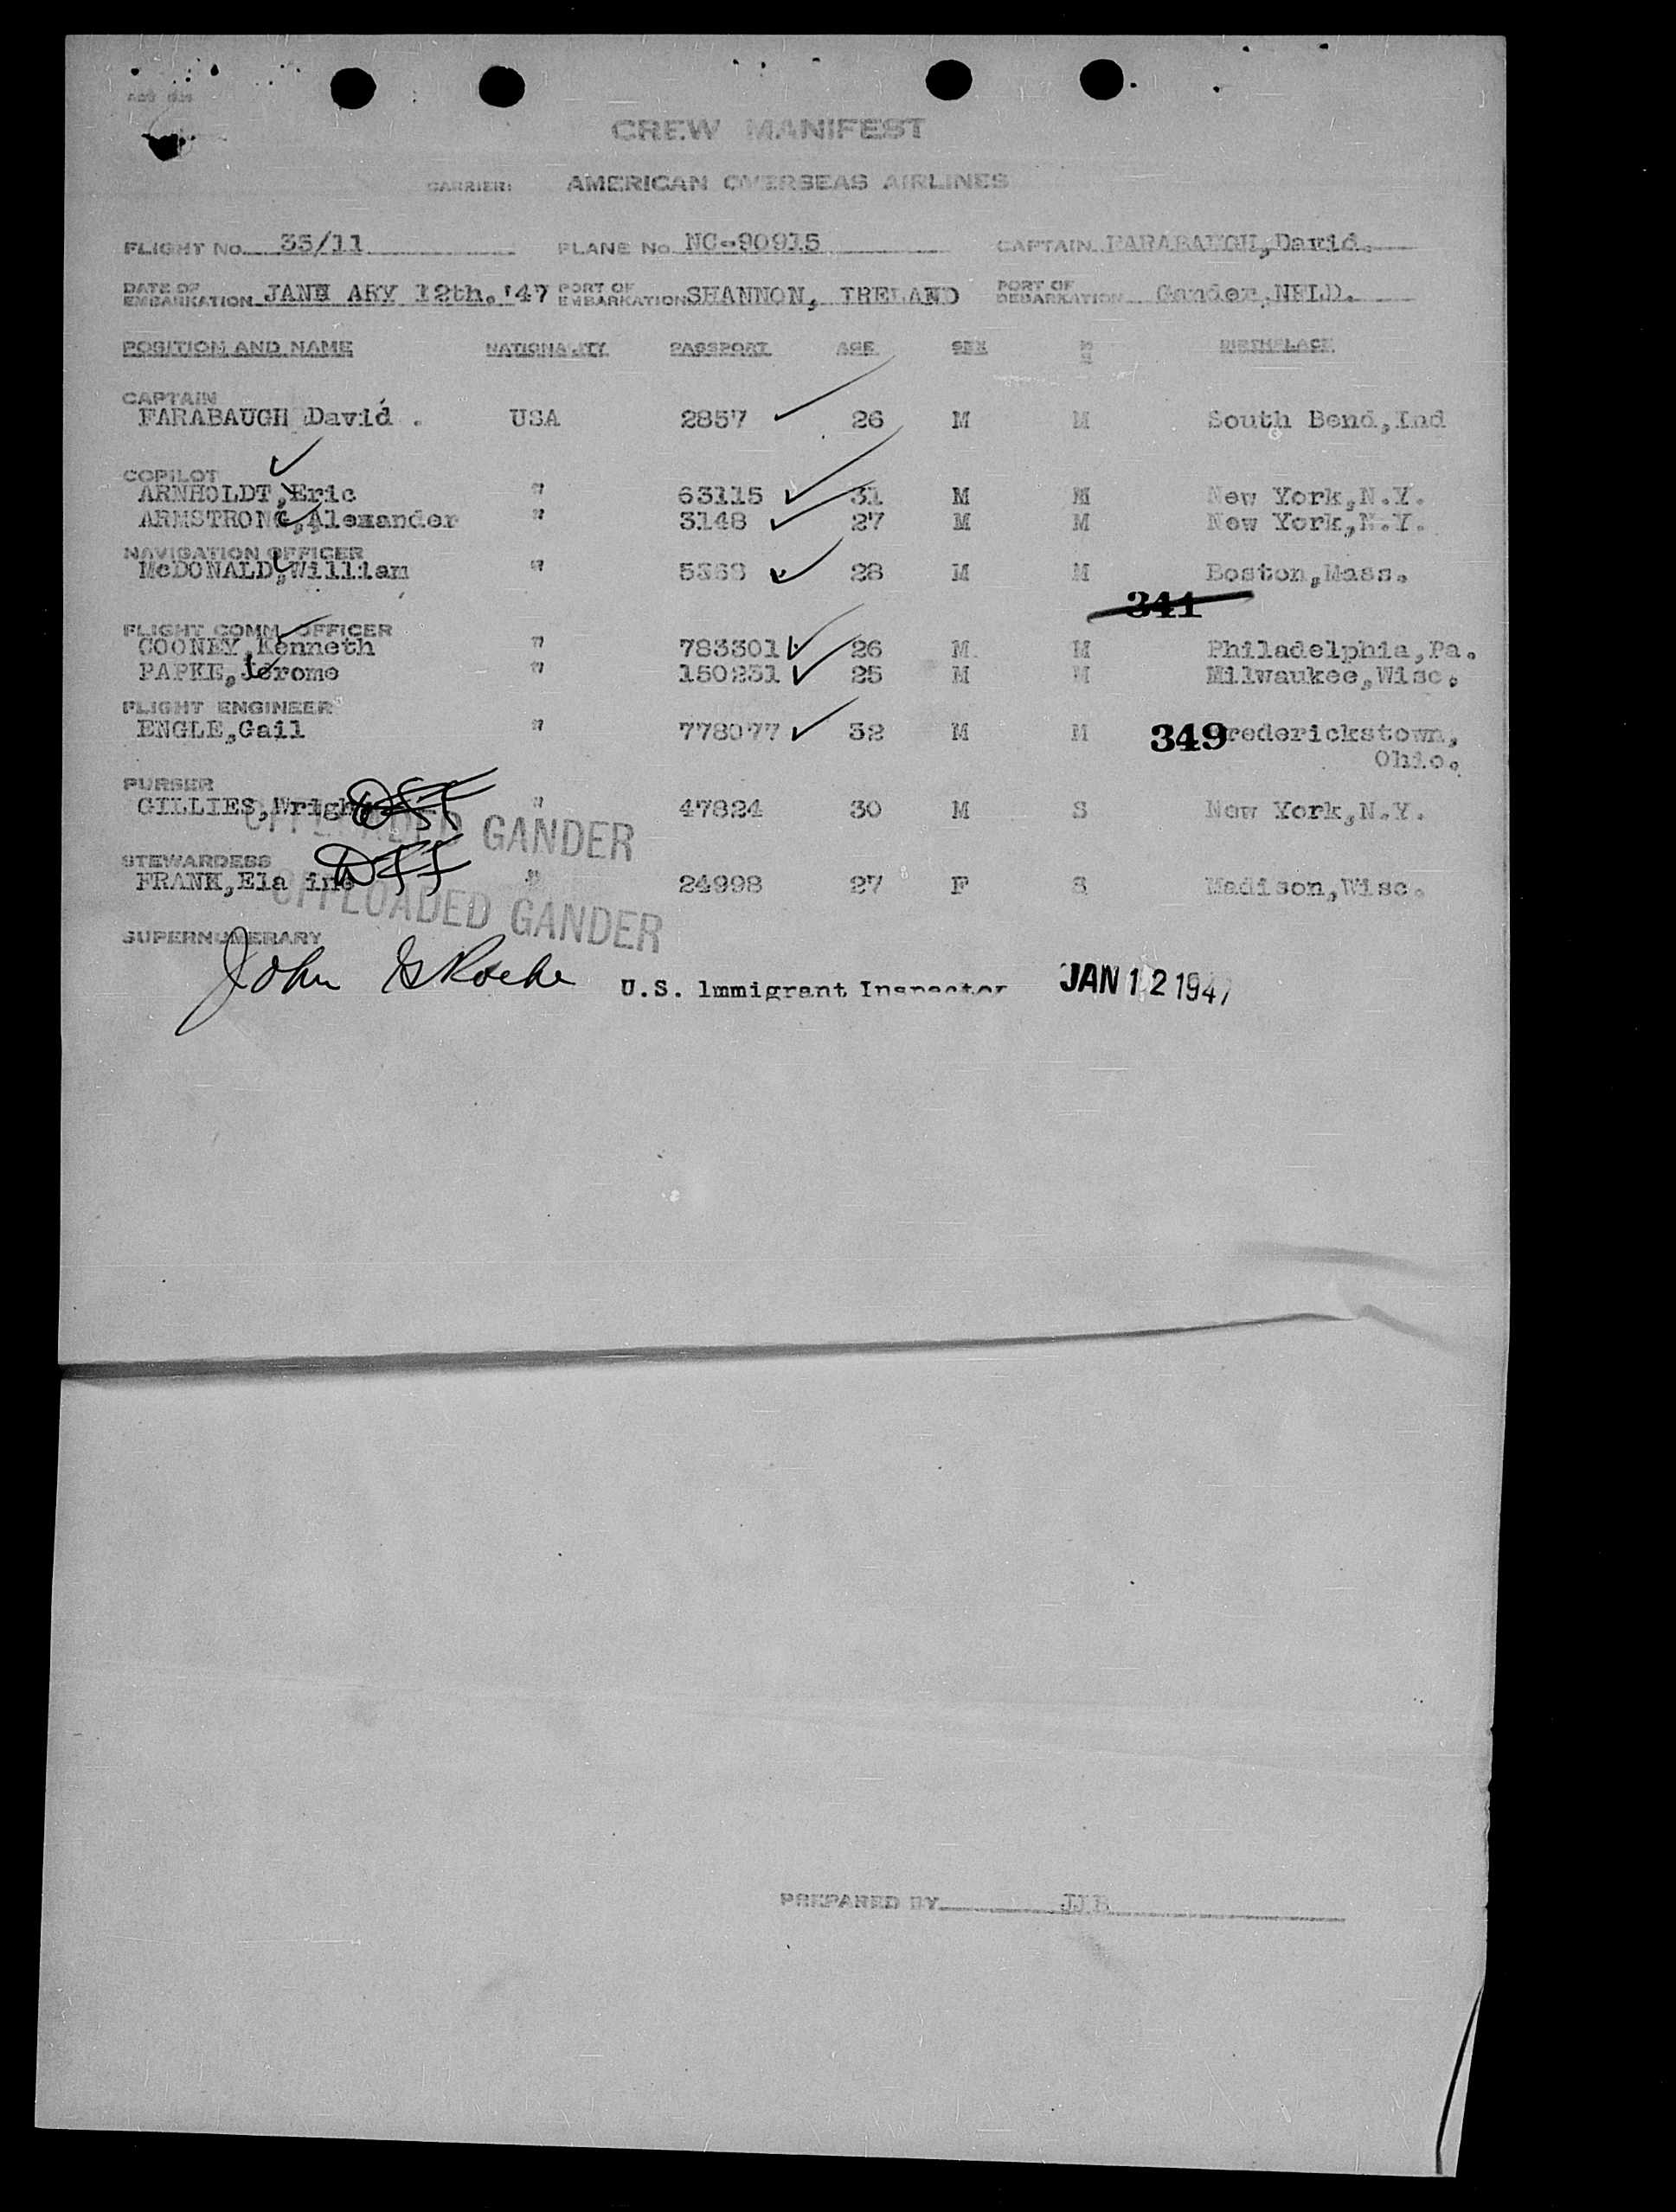 CREW MANIFEST
CARRIER: AMERICAN OVERSEAS AIRLINES
FLIGHT No. 35/11 PLANE No. NC-90915 CAPTAIN FARABAUGH,David.
DATE OF EMBARKATION JANU ARY 12th.'47 PORT OF EMBARKATION SHANNON, IRELAND PORT OF DEBARKATION Gander,NFLD.
POSITION AND NAME NATIONALITY PASSPORT AGE SEX BIRTHPLACE
CAPTAIN
FARABAUGH David . USA 2857 26 M M South Bend,Ind
COPILOT
ARNHOLDT,Eric " 63115 31 M M New York,N.Y.
ARMSTRONG,Alexander " 3148 27 M M New York,N.Y.
NAVIGATION OFFICER
McDONALD,William " 28 M M Boston,Mass.
341
FLIGHT COMM. OFFICER
COONEY,Kenneth " 783301 26 M M Philadelphia,Pa.
PAPKE,Jerome " 150231 25 M M Milwaukee,Wisc.
FLIGHT ENGINEER
ENGLE,Gail " 778077 32 M M 349 Frederickstown,
Ohio.
PURSER
GILLIES,Wright OFF " 47824 30 M S New York,N.Y.
OFFLOADED GANDER
STEWARDESS
FRANK,Ela ine OFF " 24998 27 F S Madison,Wisc.
OFFLOADED GANDER
SUPERNUMERARY
John Roche U.S. lmmigrant Inspector JAN 12 1947
PREPARED BY